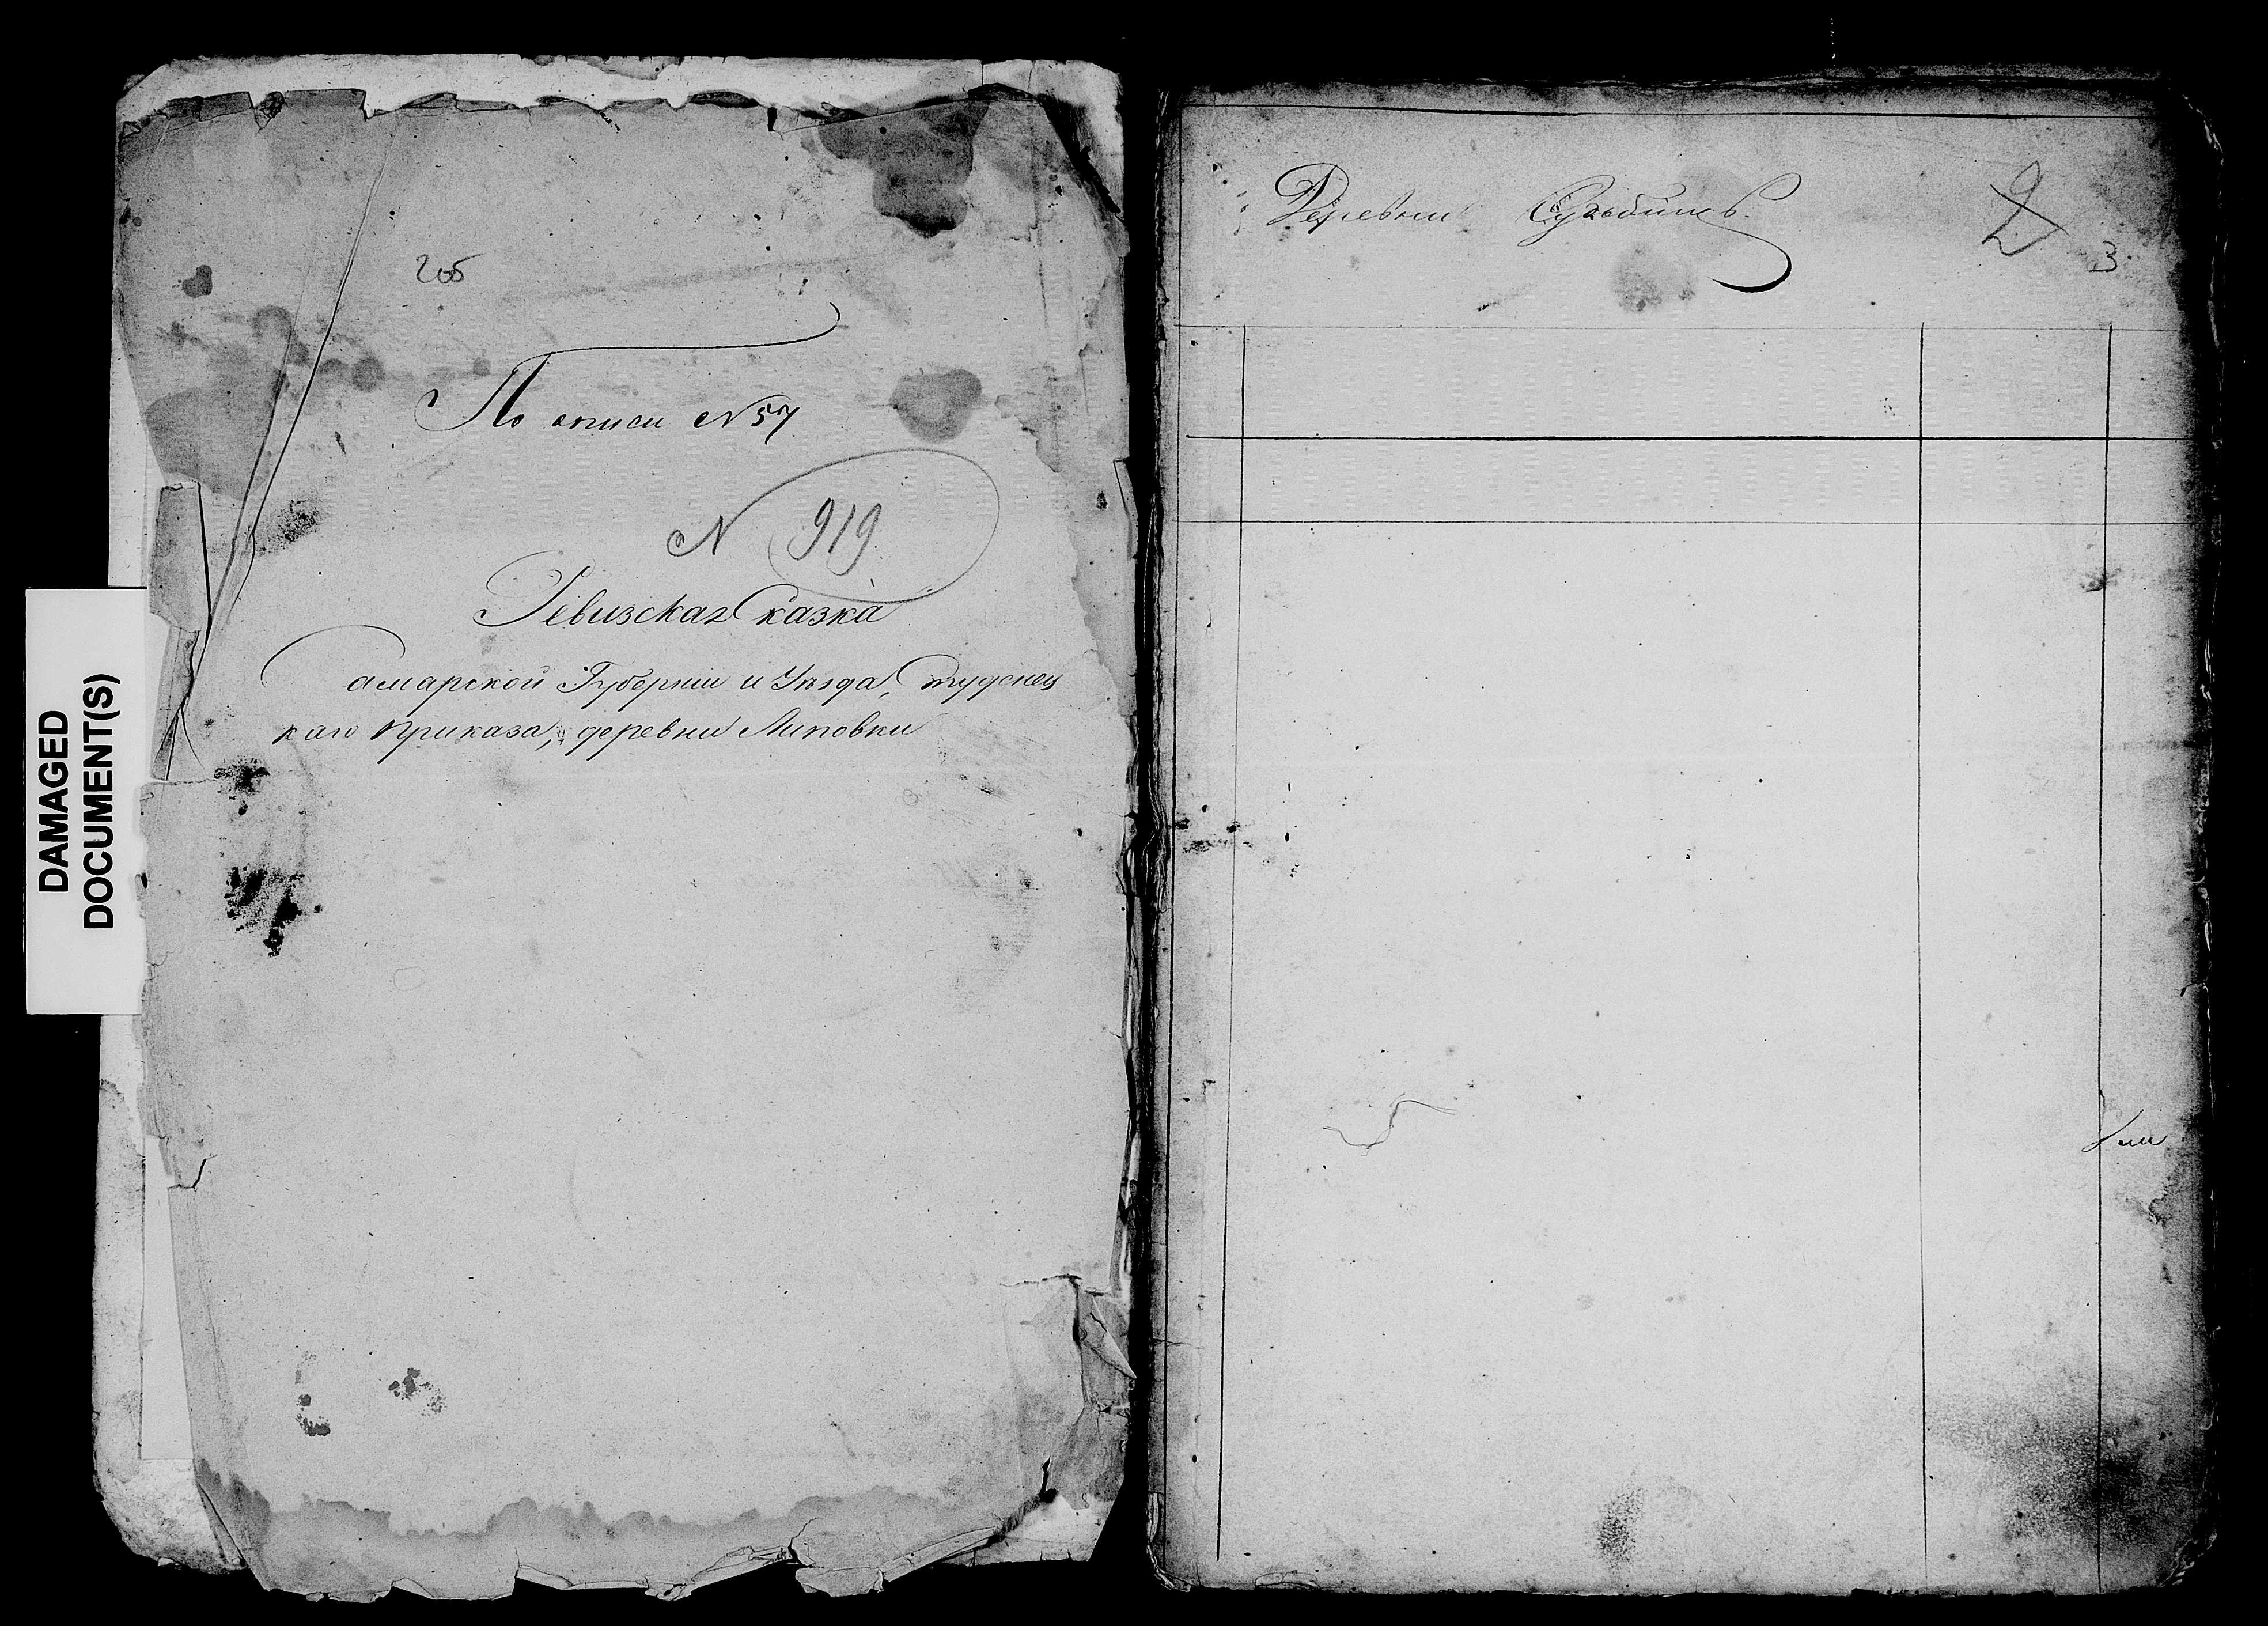 DAMAGED
DOCUMENT(S)
205
По описи N 57
N 919
Ревизская Сказка
Самарской Губернии и Уѣзда, Студенец
каго Приказа, деревни Липовки
Деревни
2
3